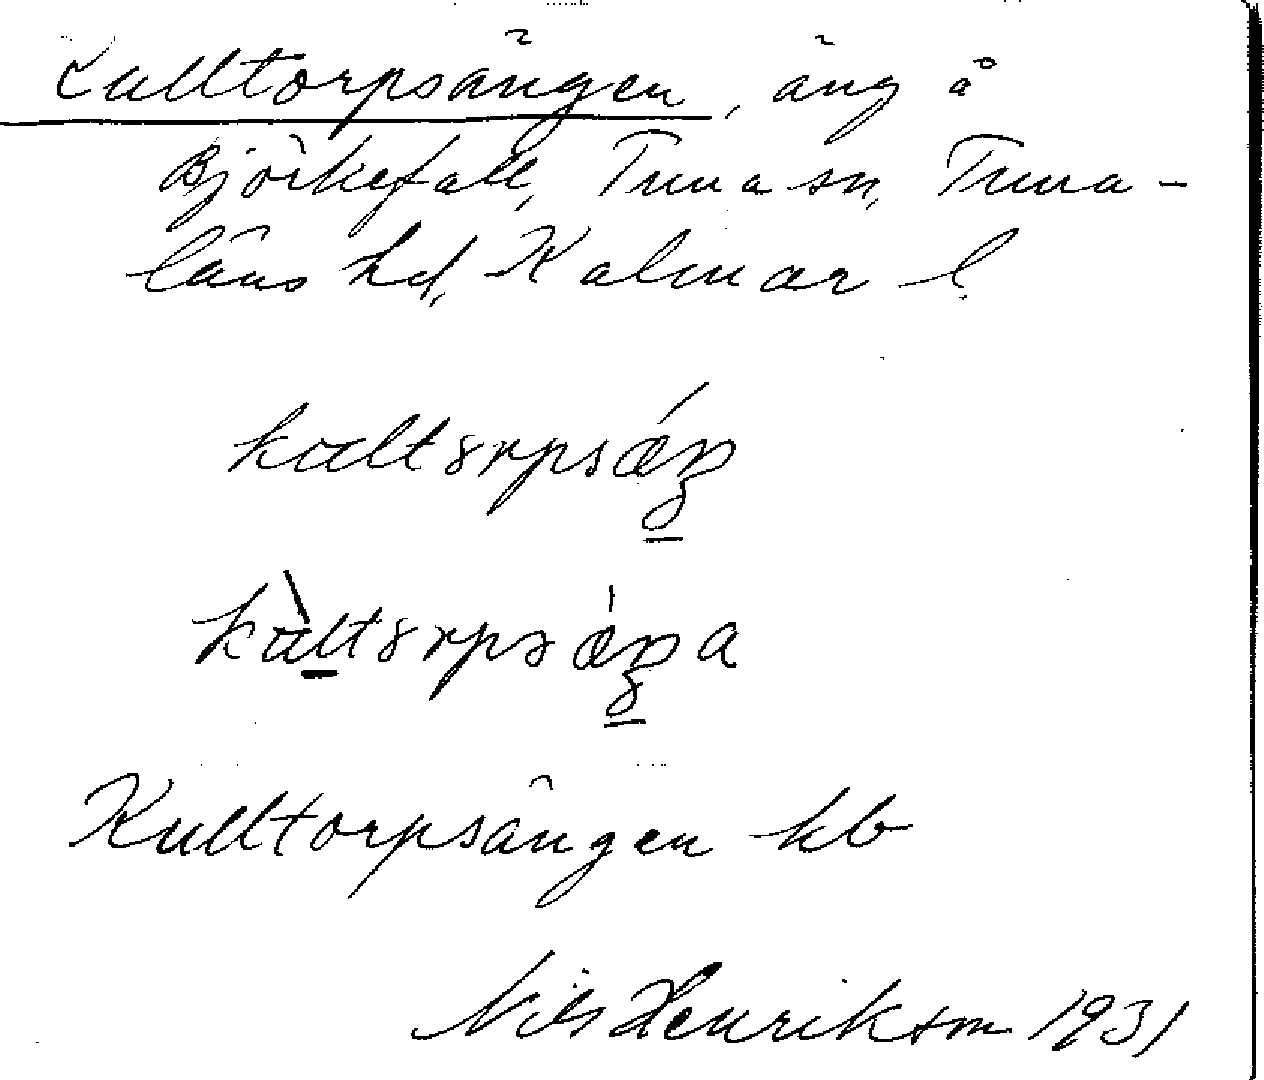 Kulltorpsängen, äng å
Björkefall, Tuna sn, Tuna-
läns hd, Kalmar l.
Kulltorpsängen kb
Nils Henrikson 1931